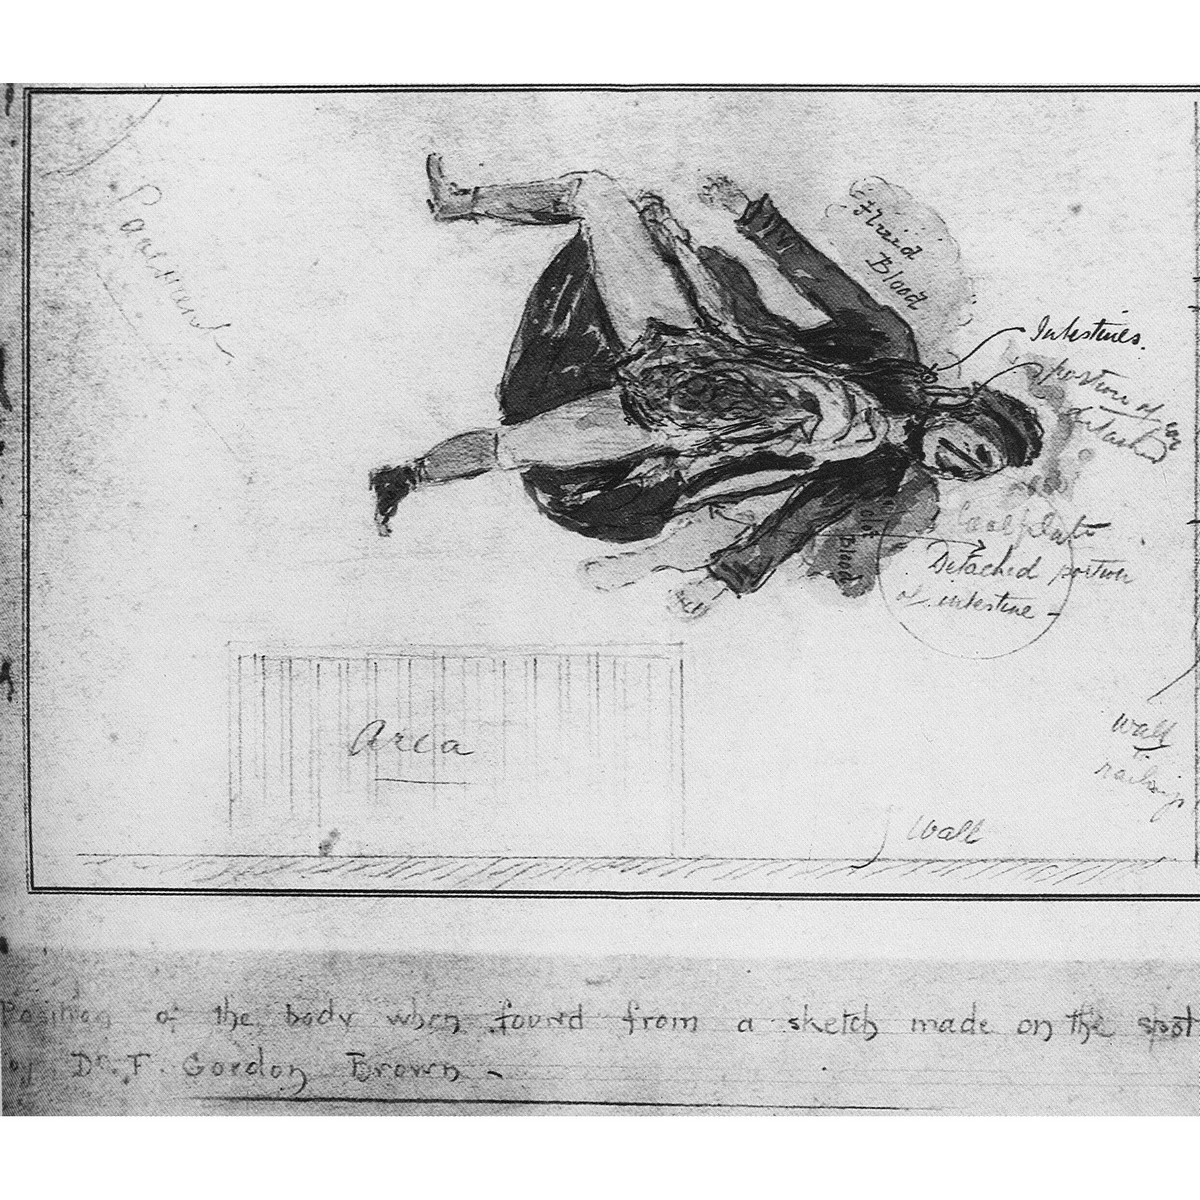 Pavement
Fluid
Blood
Intestines.
portion of
detached
Coalplate
Detached portion
of intestine -
Clot
Blood
Area
wall
railings
Wall
Position of the body when found from a sketch made on the spot
by Dr. F. Gordon Brown -